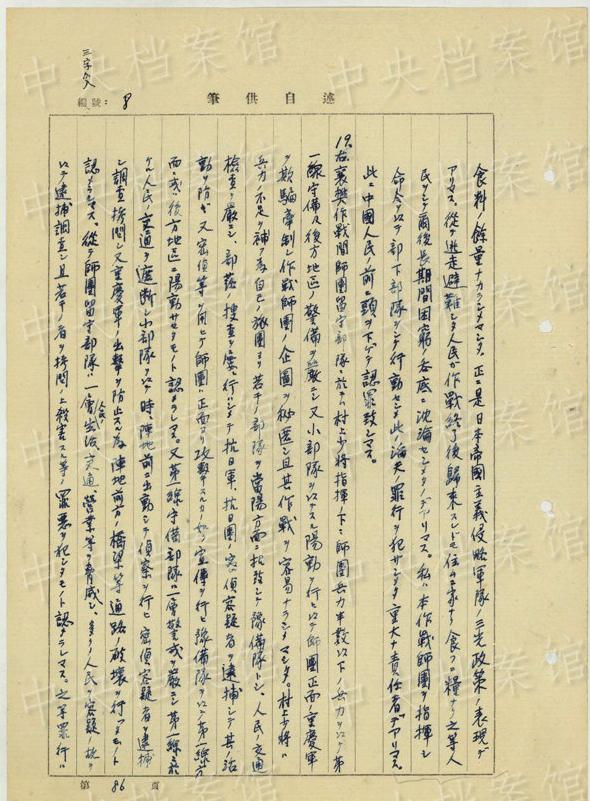 中央档案馆
三字欠
編號：8
述自供筆
食料ノ餘量ナカラシメマシタ。正ニ是日本帝國主義侵略軍隊ノ三光政策ノ表現デ
アリマス。従テ逃走避難シタ人民ガ作戰終了後歸来スルトモ住ム家ナク食フ糧ナク之等人
民ヲシテ爾後長期間困窮ノ呑底ニ沈淪センメタノデアリマス。私ハ本作戰師團ヲ指揮シ
命令ヲ以テ部下部隊ヲシテ行動センメ此ノ滔天ノ罪行ヲ犯サシメタ重大ナ責任者デアリマス。
此ニ中國人民ノ前ニ頭ヲ下ゲテ認罪致シマス。
19、右襄樊作戰間師團留守部隊ニ於テハ村上少将指揮ノ下ニ師團兵力半数以下ノ兵力ヲ以テ第
一線守備及後方地區ノ警備ヲ嚴ニシ又小部隊ヲ以テスル陽動ヲ行ヒ以テ師團正面重慶軍
ヲ欺騙牽制シ作戰師團ノ企圖ヲ秘匿シ且其作戰ヲ容易ナラシメマシタ。村上少将ハ
兵力ノ不足ヲ補フ為自己ノ旅團ヨリ若干ノ部隊ヲ當陽方面ニ招致シテ豫備隊トシ、人民ノ交通
檢查ヲ嚴ニシ、部落ノ搜查ヲ屡々行ハシメテ抗日軍、抗日團ノ密偵容疑者ヲ逮捕シテ其ノ活
動ヲ防ギ又密偵等ヲ用ヒテ師團ノ正面ヨリ攻擊スルカノ如ク宣傳ヲ行ヒ豫備隊ヲ以テ第一線方
面ニ或ハ後方地區ニ陽動サセタモノト認メラレマス。又第一線守備部隊ハ一層警戒ヲ嚴ニシ第一線ニ於
ケル人民ノ交通ヲ遮断シ小部隊ヲ以テ時々陣地前ニ出動シテ偵察ヲ行ヒ密偵容疑者ヲ逮捕
シ調查拷問シ又重慶軍ノ出擊ヲ防止スル為陣地前方ノ橋梁等通路ノ破壞ヲ行ツタモノト
認メラレマス。従テ師團留守部隊ハ一層人民ノ生活、交通、營業等ヲ脅威シ、多クノ人民ヲ容疑ノ故ヲ
以テ逮捕調查シ且若干ノ者ヲ拷問ノ上殺害スル等ノ罪惡ヲ犯シタモノト認メラレマス。之等罪行ハ
第86頁